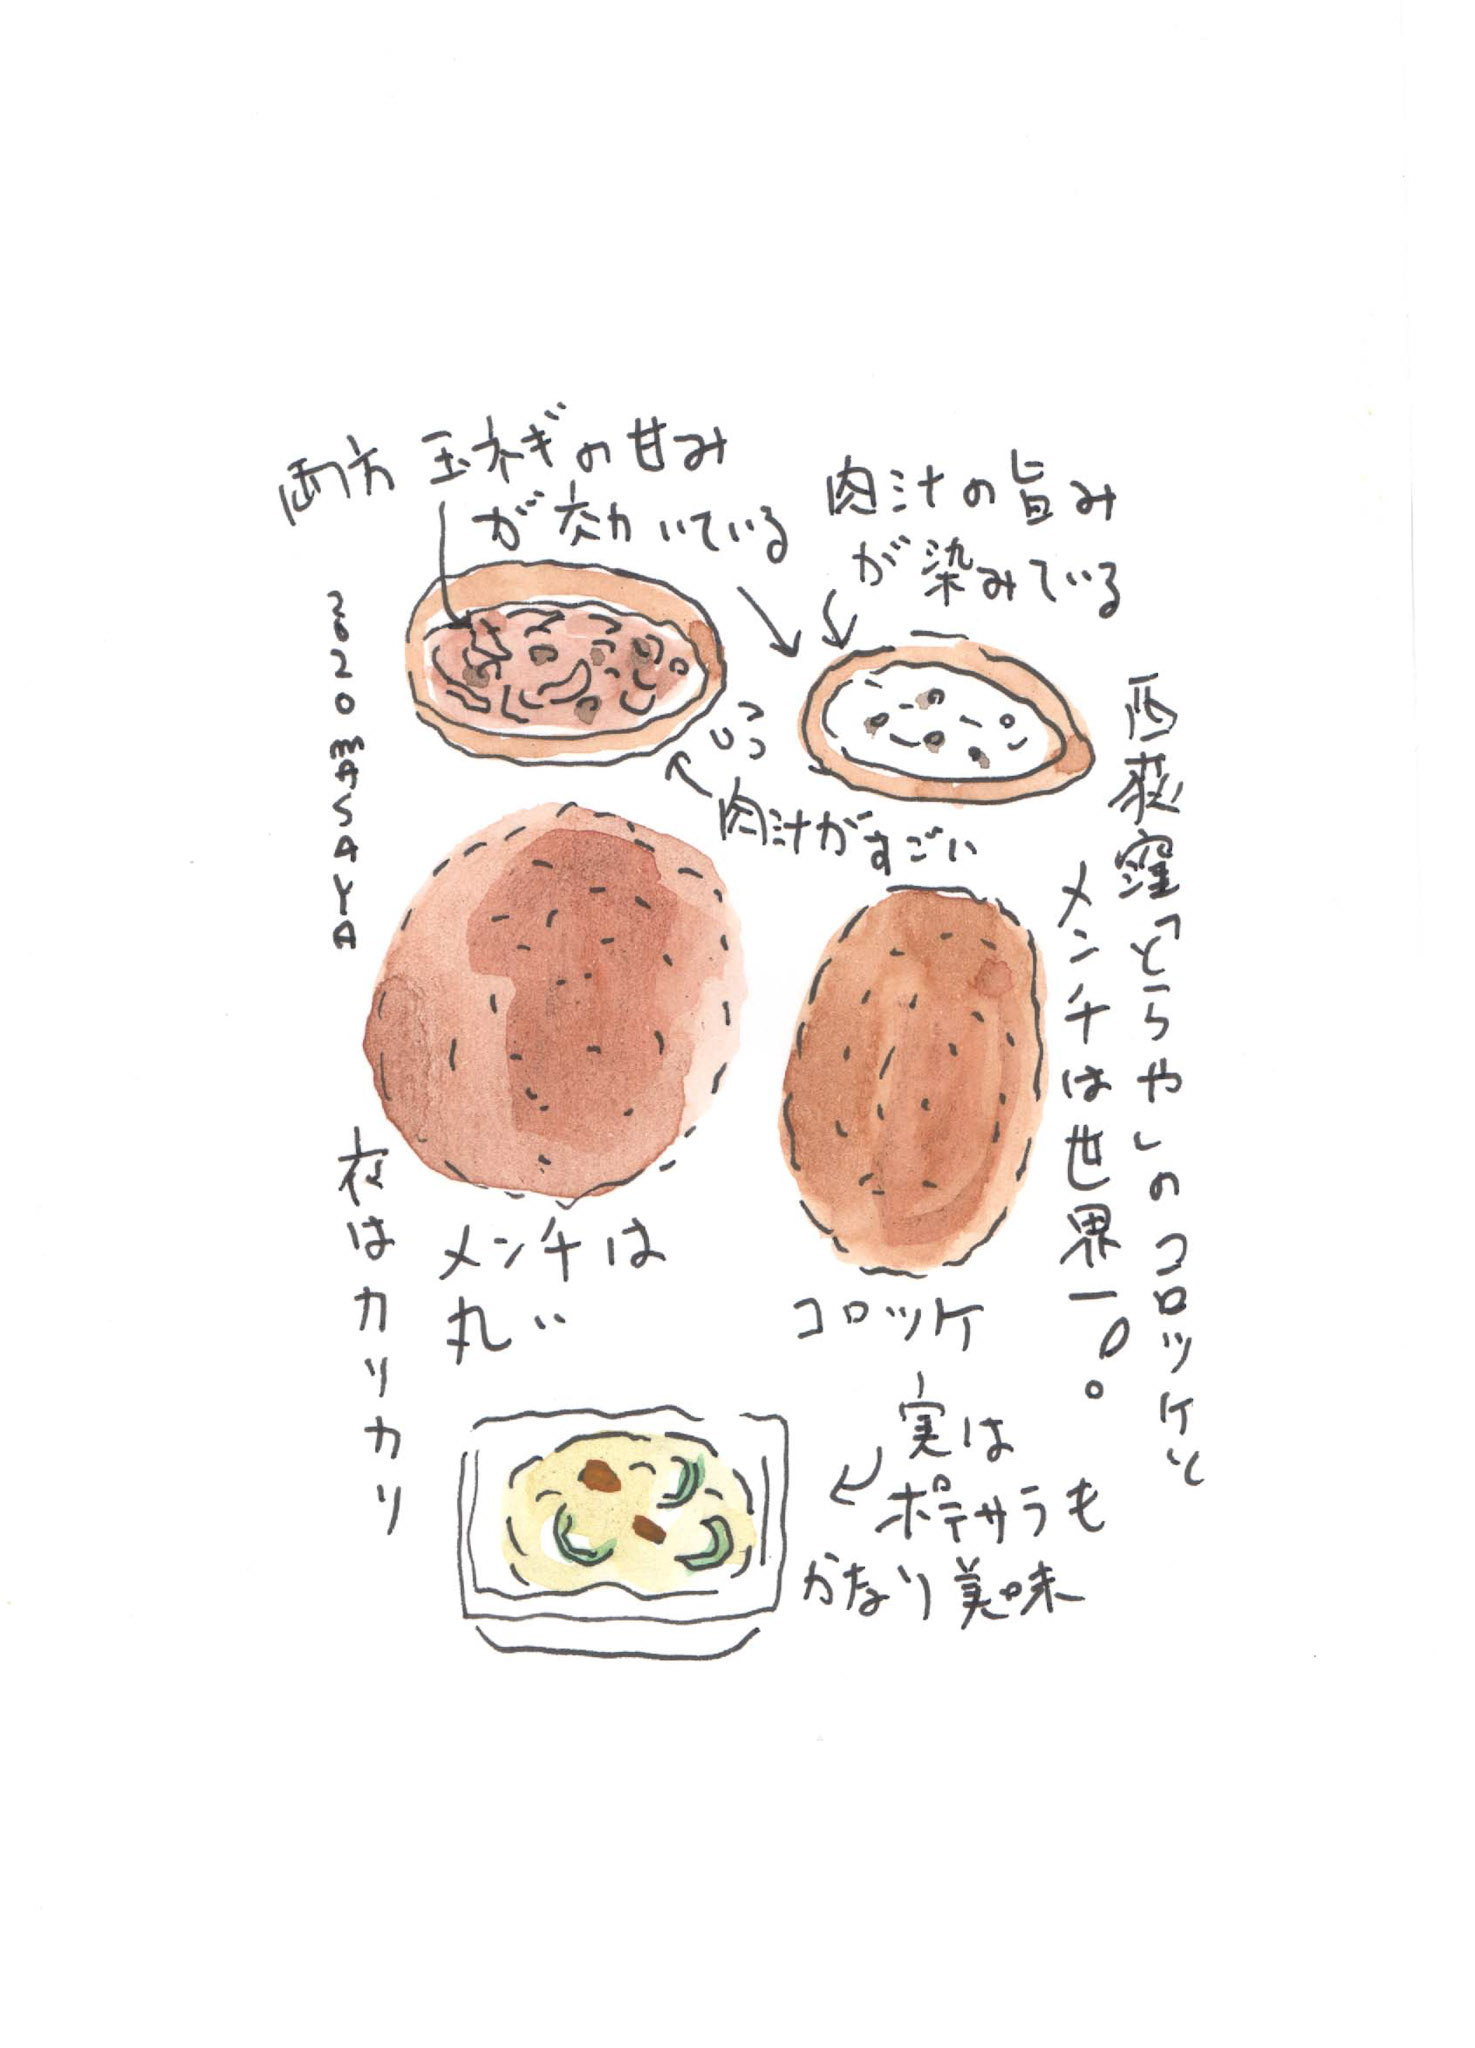 西荻窪「とらや」のコロッケと
メンチは世界一。
肉汁の旨み
が染みている
両方 玉ネギの甘み
が効いている
肉汁がすごい
2020 MASAYA
メンチは
丸い
コロッケ
夜はカリカリ
実は
ポテサラも
かなり美味